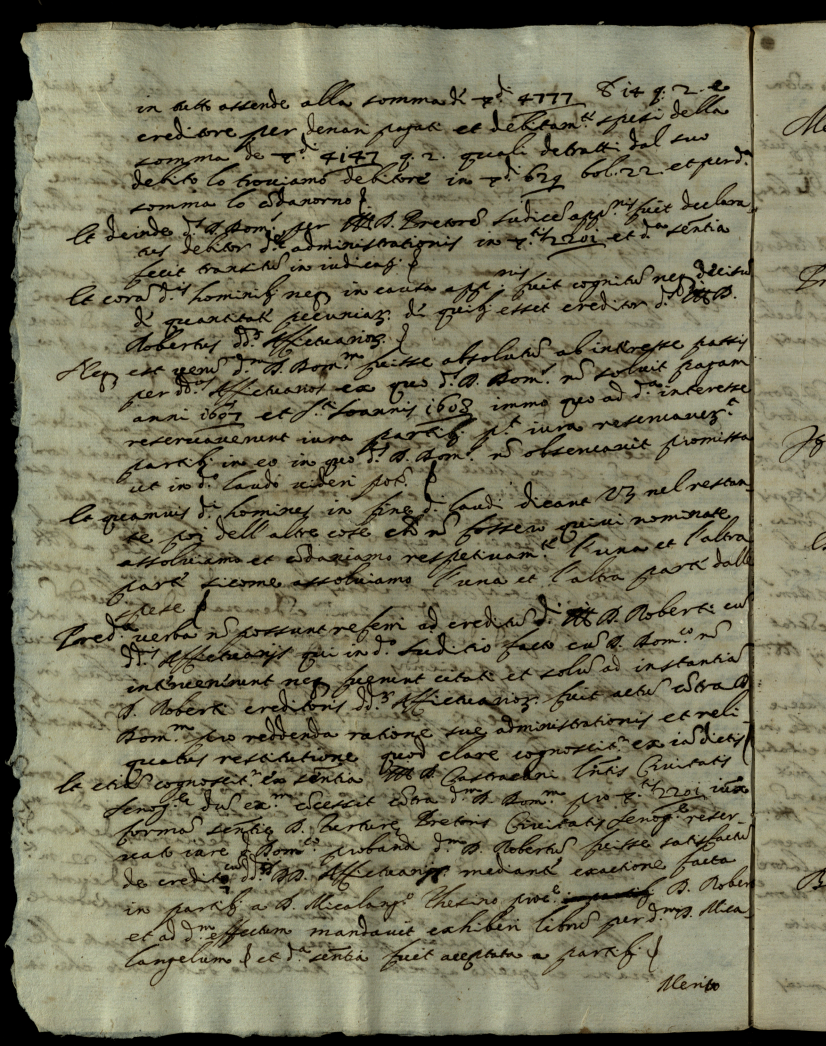 in tutto assende alla somma di 4777 14 q. 2. e
creditore per denari pagati et debitam.te spesi della
somma de 4147 q. 2. quali detratti dal suo
debito lo troviamo debitore in 629 bol. 22. et per d.a
somma lo cōdanorno
Et deinde d.s D. Dom.s per D. Pretorē Iudicē app.nis fuit declara
tus debitor d.e administrationis in 2201 et d.a sentia
fecit transitū in iudicat
Et corā d.is hominib neq in causa app.nis fuit cognitū neq decisū
de quantitate pecuniar de quib esset creditor d.s D.
Robertus dd. Affictuarior
Neq est verū d.m D. Dom.m fuisse absolutū ab interesse passis
per dd.os Affictuarios ex quo d.s D. Dom.s nō solvit pagam
anni 1607 et S.ti Ioannis 1608 immo quo ad d.a interesse
reservaverunt iura partib p.t iura reservaver.t
partib in eo in quo d.s D. Dom.s nō observavit promissa
ut in d.o laudo videri pot.
Et quamvis d.i homines in fine d.i laudi dicant Vz nel restan
te poi dell altre cose che nō fossero quivi nominate
assolviamo et cōdaniamo respetivam.te l'una et l'altra
parte sicome assolviamo l'una et l'altra parte dalle
spese
Pred.a verba nō possunt referri ad creditū d.i D. Roberti cū
dd.s Affictuarijs qui in d.o Iuditio facto cū D. Dom.co nō
intervenerunt neq fuerunt citati et solū ad instantiā
D. Roberti creditoris dd. Affictuarior fuit actū cōtra D.
Dom.m pro reddenda ratione sue administrationis et reli
quatus restitutione quod clare cognoscit.r ex iā dictis
Et etiā cognoscit.r ex sentia D. Castracani Civitatis
Senog.e dū cōcessit cōtra d.m D. Dom.m pro 2201 iuxta
formā sentie D. Pretoris Civitatis Senog.e reser
vato iure D. Dom.co probandi d.m D. Robertū fuisse satisfactū
de credito cū dd. DD. Affictuarijs mediante exactione facta
in partib a D. Micalang.o Thesino proc.e D. Rober
et ad d.m effectum mandavit exhiberi librū per d.m D. Mica
langelum et d.a sentia fuit acceptata a partib
Merito